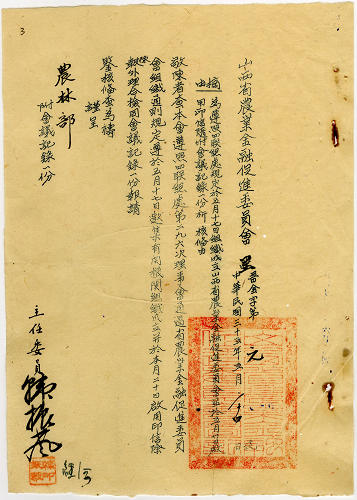 山西省農業金融促進委員會 呈 晉金字第 元
中華民國三十五年五月
摘由 為遵照四聯總處規定於五月十七日組織成立山西省農業金融促進委員會並於五月二十日啟
用印信謹附會議記錄一份祈 核備由
敬陳者查本會遵照四聯總處第二九六次理事會通過省農業金融促進委員
會組織通則規定遵於五月十七日邀集有關機關組織成立并於本月二十日啟用印信除
外理合檢同會議記錄一份報請
鑒核備查為禱
謹呈
農林部
附會議記錄一份
主任委員
3